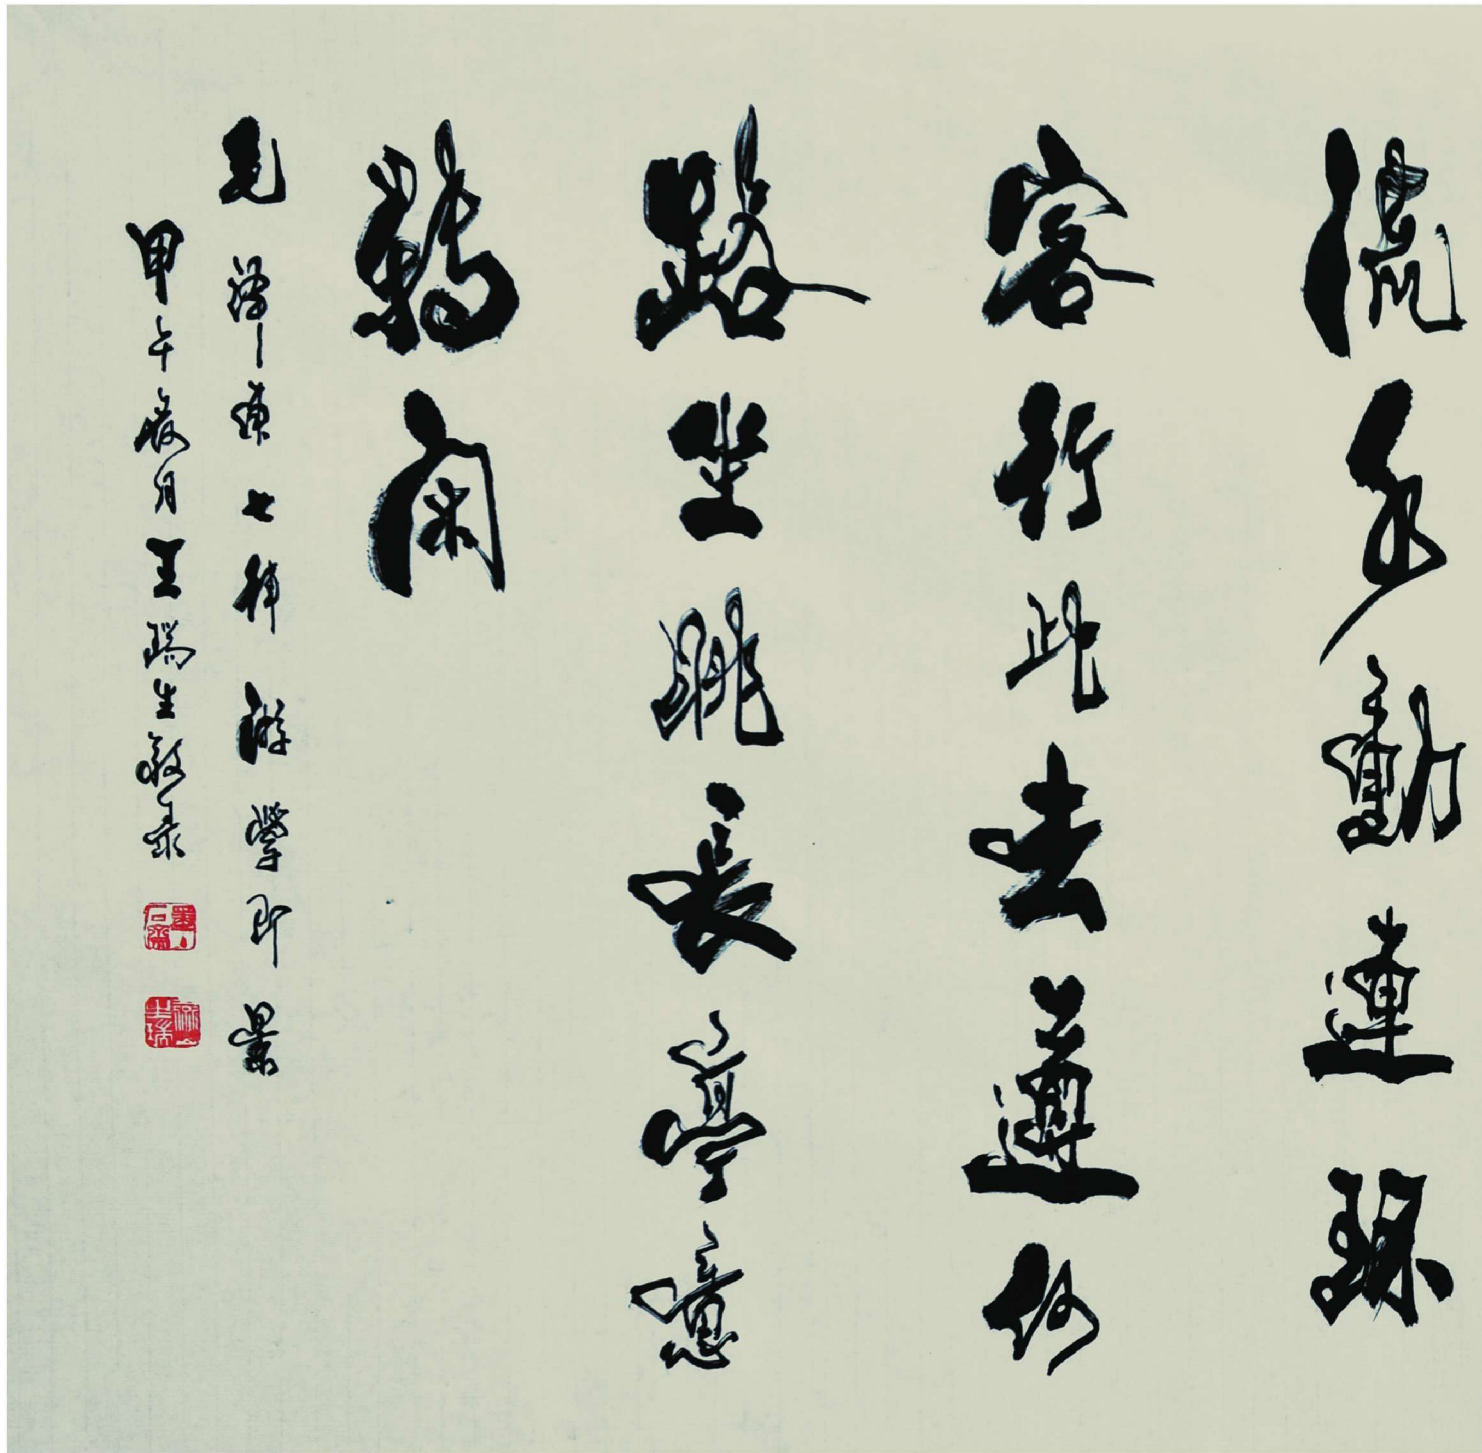 流水動連环
客行此去遵何
路坐眺長亭意
轉闲
毛澤東七律游學即景
甲午月王瑞生敬录